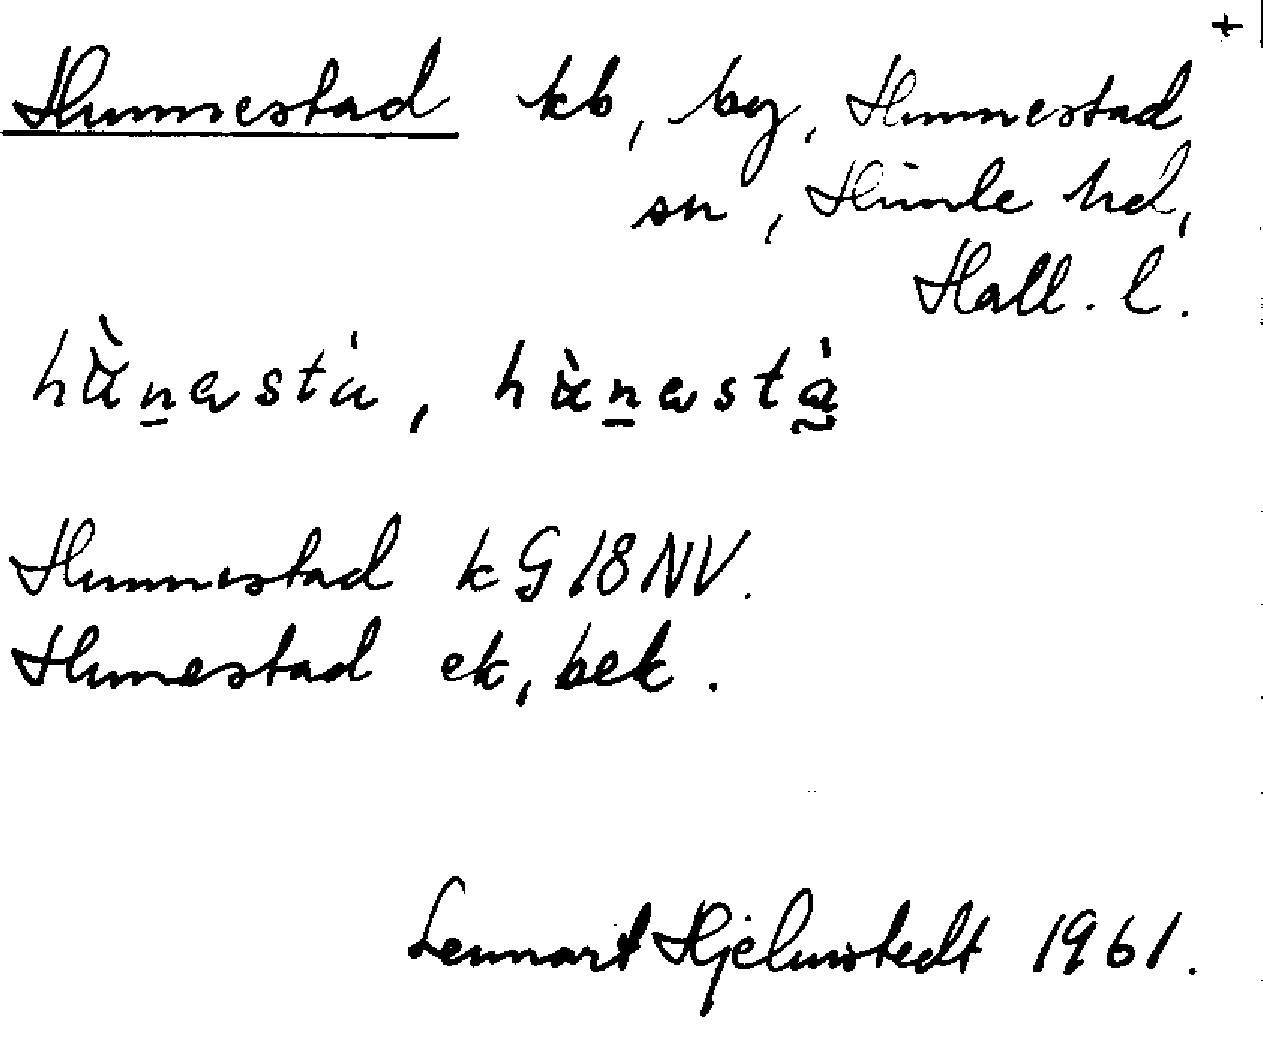 +
Hunnestad kb, by, Hunnestad
sn, Himle hd,
Hall. l.
hùn̲əstà, hùn̲əstà̰
Hunnestad k G 18 NV.
Hunestad ek, bek.
Lennart Hjelmstedt 1961.